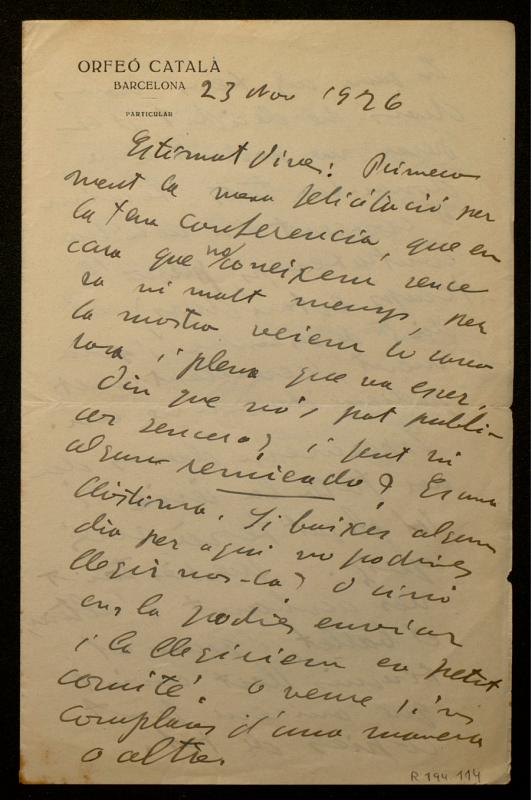 ORFEÓ CATALÀ
BARCELONA
PARTICULAR
23 Nov 1926
Estimat Vives: Primera
ment la meva felicitació per
la teva conferencia, que en
cara que no coneixem sence
ra ni molt menys, per
la mostra veiem lo
i plena que va esser,
Diu que no's pot publi-
car sencera? i fent ni
alguna? Es una
llàstima. Si baixes algun
dia per aquí no podries
llegir nos-la? O sinó
ens la podies enviar
i la llegiriem en petit
comité. A veure si'ns
complaus d'una manera
o altra.
R 194.114